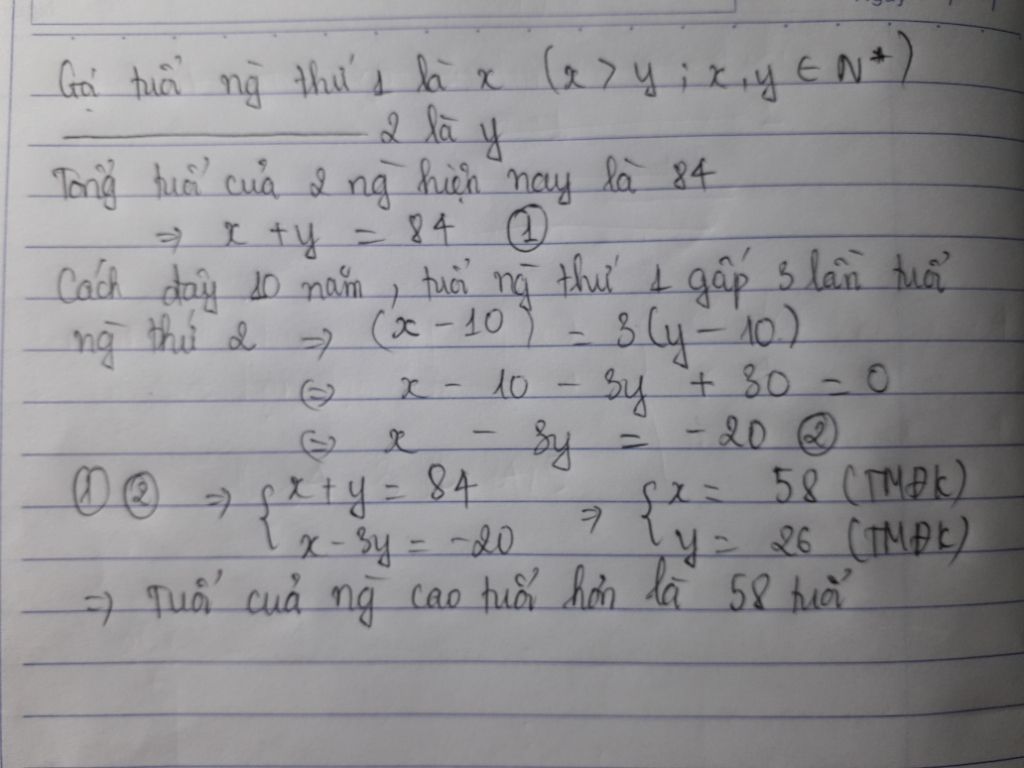 Gọi tuổi ng̀ thứ 1 là x (x > y ; x, y ∈ N*)
2 là y
Tổng tuổi của 2 ng̀ hiện nay là 84
⇒ x + y = 84 ①
Cách đây 10 năm, tuổi ng̀ thứ 1 gấp 3 lần tuổi
ng̀ thứ 2 ⇒ (x - 10) = 3(y - 10)
⇔ x - 10 - 3y + 30 = 0
⇔ x - 3y = -20 ②
① ② ⇒ { x + y = 84 ⇒ { x = 58 (TMĐK)
x - 3y = -20 y = 26 (TMĐK)
⇒ Tuổi của ng̀ cao tuổi hơn là 58 tuổi